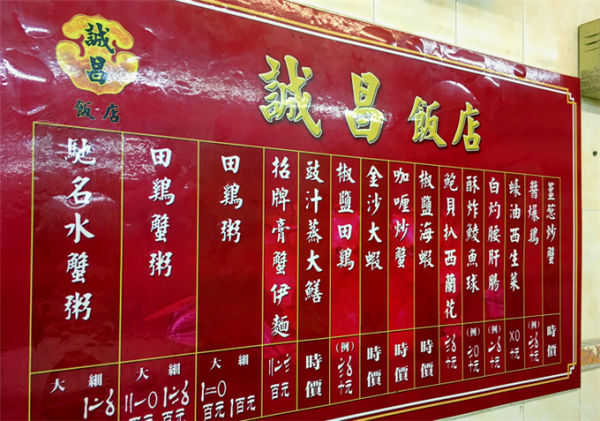 誠昌
飯店
誠昌飯店
薑葱炒蟹
時價
醬爆鷄
蠔油西生菜
白灼腰肝腸
(例)
酥炸鯪魚球
(例)
鮑貝扒西蘭花
椒鹽海蝦
時價
咖喱炒蟹
時價
金沙大蝦
時價
椒鹽田鷄
(例)
豉汁蒸大鱔
時價
招牌膏蟹伊麵
百元
田鷄粥
大 細
百元
田鷄蟹粥
大 細
百元 百元
馳名水蟹粥
大 細